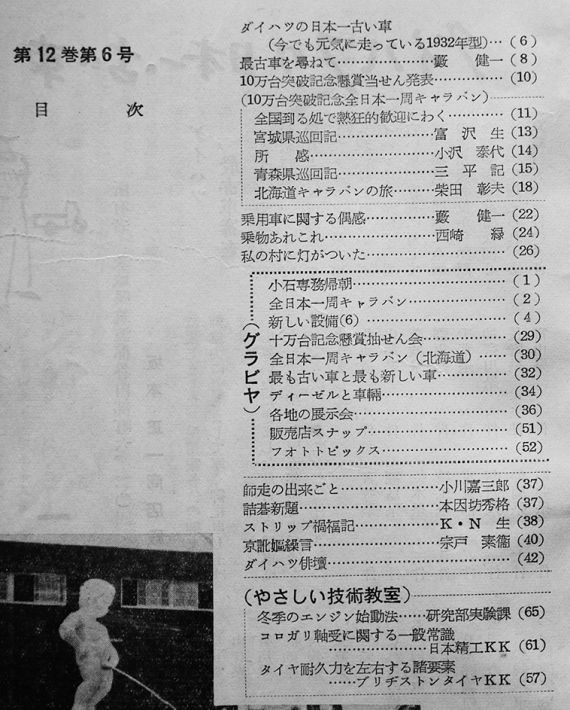 第12巻第6号
目次
ダイハツの日本一古い車
(今でも元気に走っている1932年型)…(6)
最古車を尋ねて………………藪 健一(8)
10万台突破記念懸賞当せん発表…………(10)
(10万台突破記念全日本一周キャラバン)
全国到る処で熱狂的歓迎にわく…………(11)
宮城県巡回記………………富沢 生(13)
所感………………小沢泰代(14)
青森県巡回記………………三平記(15)
北海道キャラバンの旅………柴田彰夫(18)
乗用車に関する偶感…………藪 健一(22)
乗物あれこれ………………西崎 緑(24)
私の村に灯がついた………………(26)
(グラビヤ)
小石専務帰朝………………(1)
全日本一周キャラバン………………(2)
新しい設備(6)………………(4)
十万台記念懸賞抽せん会…………(29)
全日本一周キャラバン(北海道)……(30)
最も古い車と最も新しい車…………(32)
ディーゼルと車輛………………(34)
各地の展示会………………(36)
販売店スナップ………………(51)
フオトトピックス………………(52)
師走の出来ごと………………小川嘉三郎(37)
詰碁新題………………本因坊秀格(37)
ストリップ禍福記………………K・N 生(38)
京訛嫗繰言………………宗戸 (40)
ダイハツ俳壇………………(42)
(やさしい技術教室)
冬季のエンジン始動法……研究部実験課(65)
コロガリ軸受に関する一般常識
………………日本精工KK(61)
タイヤ耐久力を左右する諸要素
……ブリヂストンタイヤKK(57)